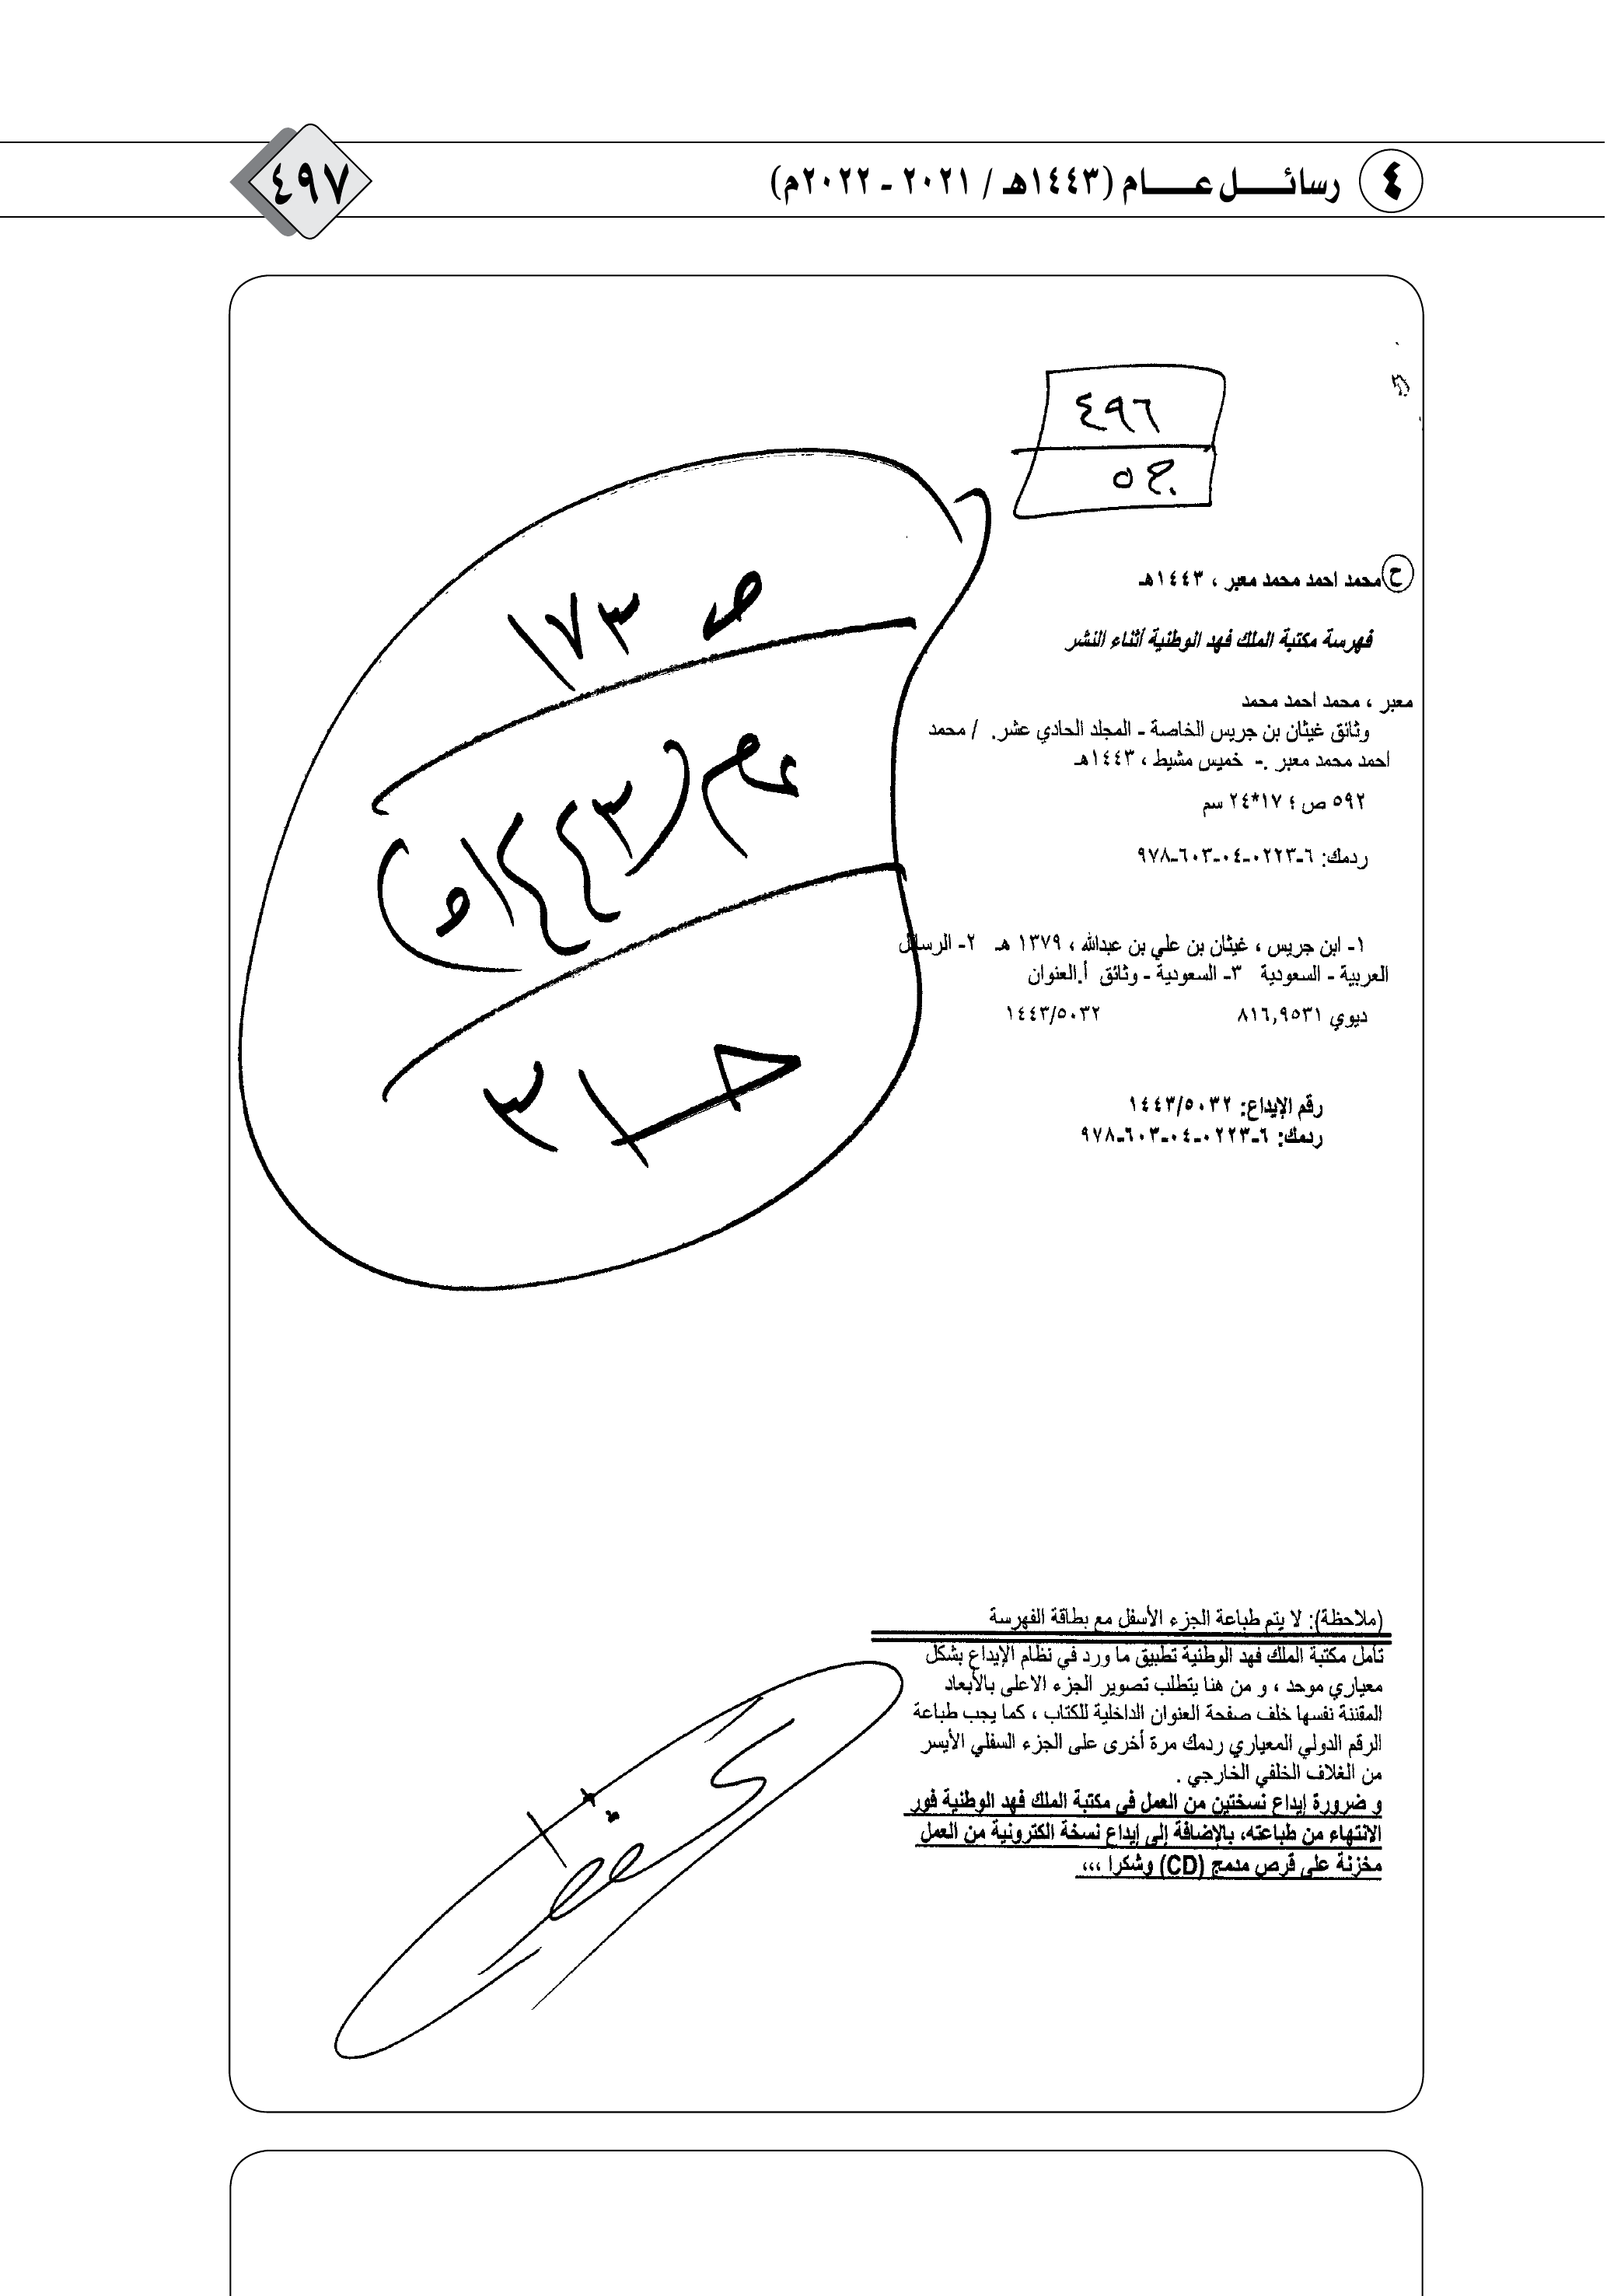 ٤ رسائل عام (١٤٤٣هـ / ٢٠٢١ - ٢٠٢٢م) ٤٩٧
٤٩٦
ج ٥
ح محمد احمد محمد معبر ، ١٤٤٣هـ
فهرسة مكتبة الملك فهد الوطنية أثناء النشر
معبر ، محمد احمد محمد
وثائق غيثان بن جريس الخاصة - المجلد الحادي عشر. / محمد
احمد محمد معبر .- خميس مشيط ، ١٤٤٣هـ
٥٩٢ ص ؛ ١٧*٢٤ سم
ردمك: ٦-٠٢٢٣-٠٤-٦٠٣-٩٧٨
١- ابن جريس ، غيثان بن علي بن عبدالله ، ١٣٧٩ هـ ٢- الرسائل
العربية - السعودية ٣- السعودية - وثائق أ.العنوان
ديوي ٨١٦,٩٥٣١ ١٤٤٣/٥٠٣٢
رقم الإيداع: ١٤٤٣/٥٠٣٢
ردمك: ٦-٠٢٢٣-٠٤-٦٠٣-٩٧٨
ص ١٧٣
عم (١٤٤٣هـ)
(ملاحظة): لا يتم طباعة الجزء الأسفل مع بطاقة الفهرسة
تأمل مكتبة الملك فهد الوطنية تطبيق ما ورد في نظام الإيداع بشكل
معياري موحد ، و من هنا يتطلب تصوير الجزء الاعلى بالأبعاد
المقننة نفسها خلف صفحة العنوان الداخلية للكتاب ، كما يجب طباعة
الرقم الدولي المعياري ردمك مرة أخرى على الجزء السفلي الأيسر
من الغلاف الخلفي الخارجي .
و ضرورة إيداع نسختين من العمل في مكتبة الملك فهد الوطنية فور
الانتهاء من طباعته، بالإضافة إلى إيداع نسخة الكترونية من العمل
مخزنة على قرص مدمج (CD) وشكرا ،،،